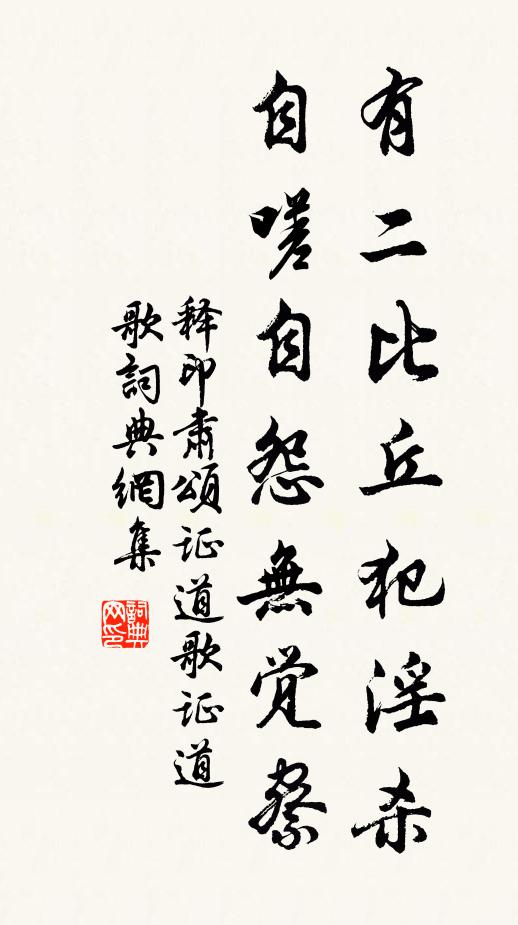 有二比丘犯淫杀
自嗟自怨無覚察
释印肃颂证道歌证道
歌詞典網集
詞典
网印